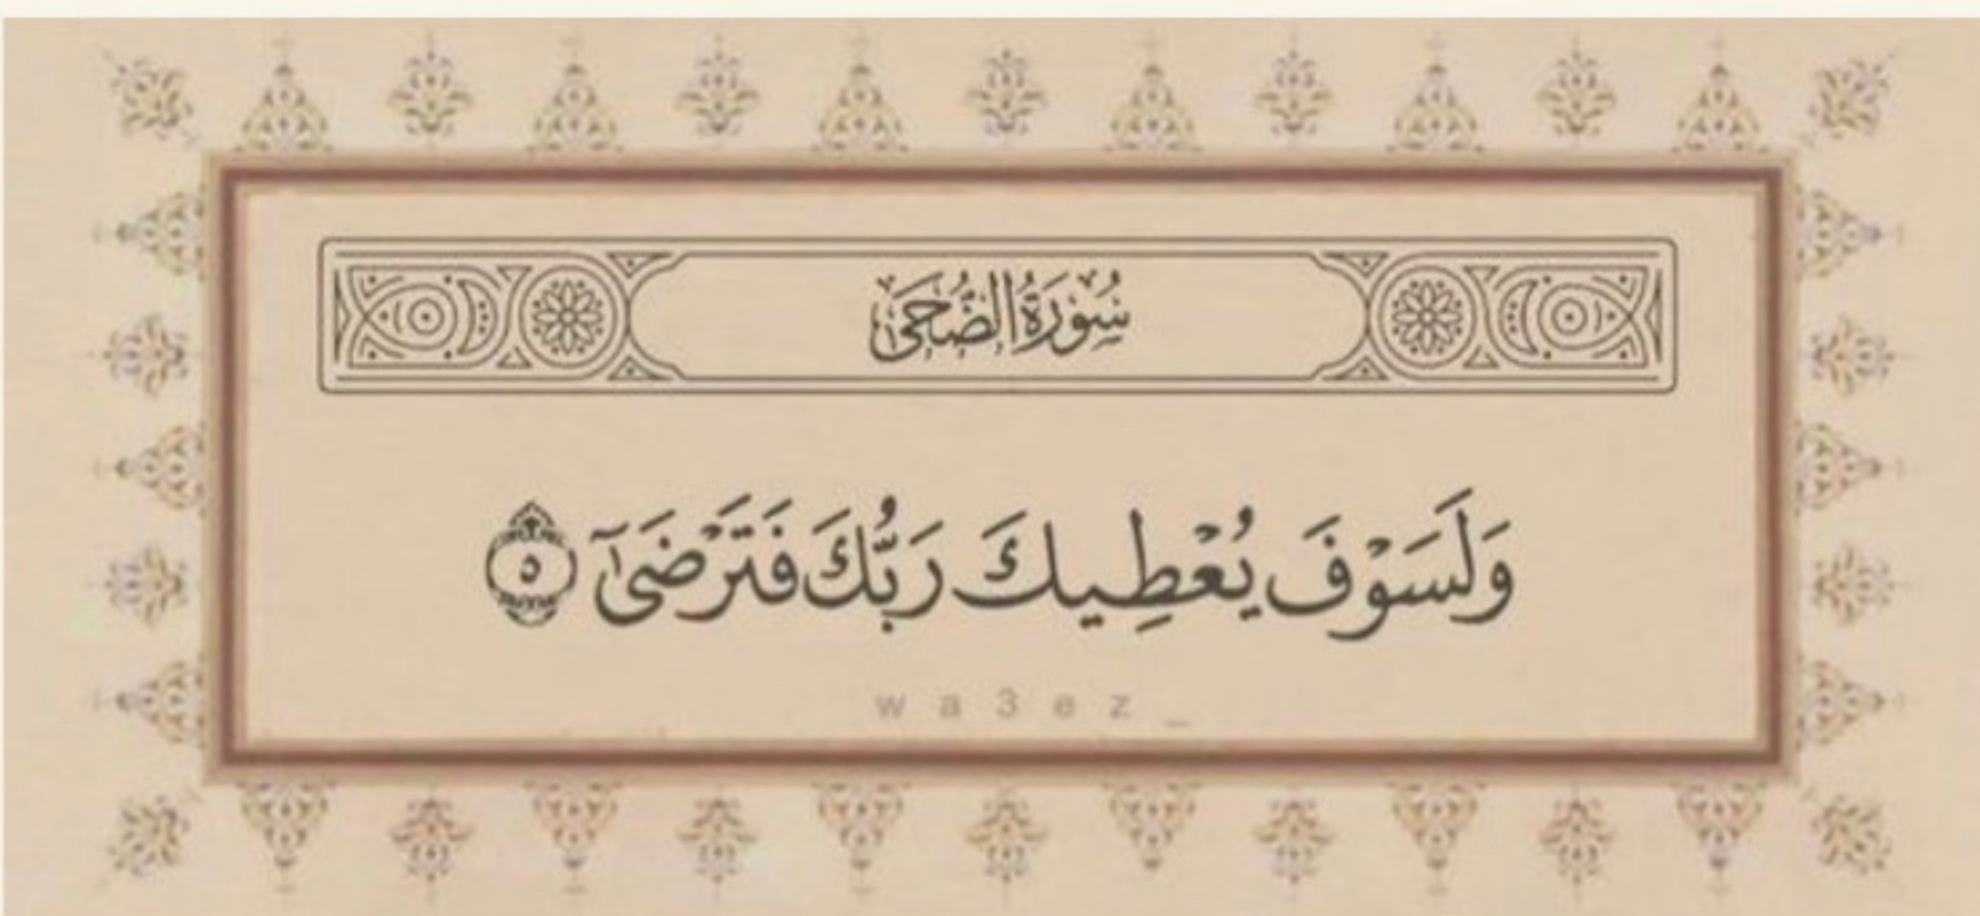 سُورَةُ الضُّحَىٰ
وَلَسَوْفَ يُعْطِيكَ رَبُّكَ فَتَرْضَىٰٓ ٥
w a 3 e z _